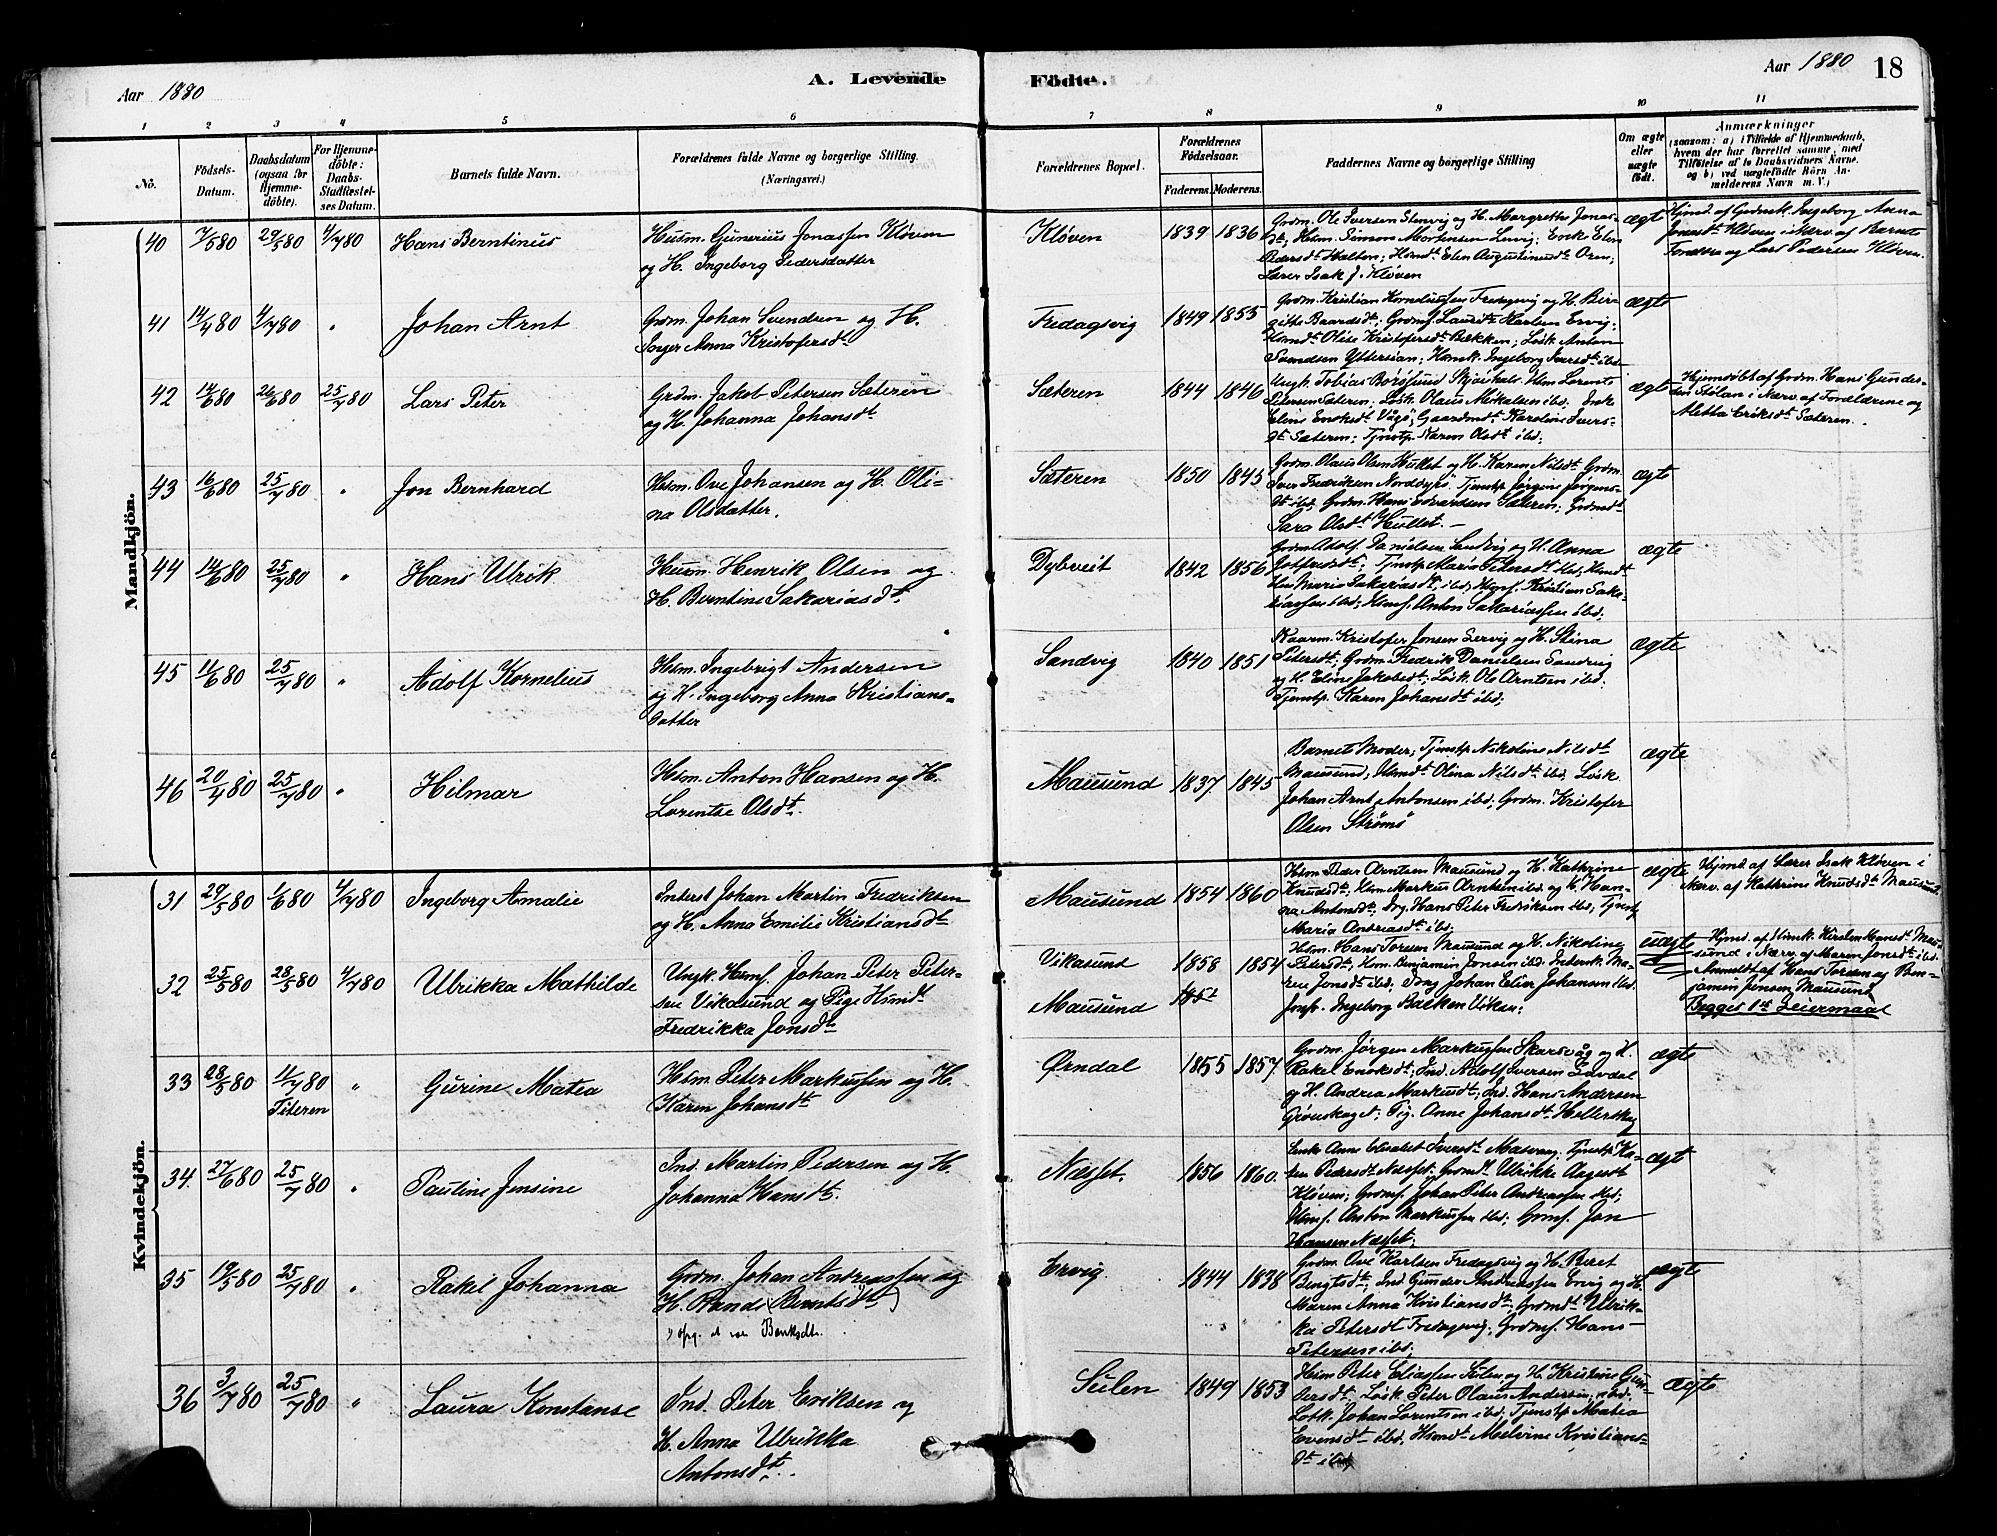 Aar 1880
A. Levende
Födte.
Aar 1880
18
1 2 3 4 5 6 7 8 9 10 11
No.
Födsels-
Datum.
Daabsdatum
(ogsaa for
Hjemme-
döbte).
For Hjemme-
döbte:
Daabs-
Stadfæstel-
ses Datum.
Barnets fulde Navn.
Forældrenes fulde Navne og borgerlige Stilling.
(Næringsvei.)
Forældrenes Bopæl.
Forældrenes
Födselsaar.
Faderens. Moderens.
Faddernes Navne og borgerlige Stilling
Om ægte
eller
uægte
födt.
Anmærkninger
(saasom: a) i Tilfælde af Hjemmedaab,
hvem der har forrettet samme, med
Tilföielse af to Daabsvidners Navne.
og b) ved uægtefödte Börn An-
melderens Navn m. V.)
Mandkjön.
40 7/5 80 29/5 80 4/7 80 Hans Berntinus
Husm. Gunerius Jonassen Kløven
og H. Ingeborg Pedersdatter
Kløven 1839 1836
Grdm. Ole Iversen Stenvig og H. Margrethe Jonas-
dt; Husm. Simon Mortensen Lervig; Enke Elen
Pedersdt Halten; Husmdt Elen Augustinusdt Oren;
Lærer Isak J. Kløven
ægte
Hjmd. af Grdmk. Ingeborg Anna
Jonasdt Kløven i Nærv. af Barnets
Forældre og Lars Pedersen Kløven.
41 14/4 80 4/7 80 " Johan Arnt
Grdm. Johan Svendsen og H.
Inger Anna Kristofersdt
Fredagsvig 1849 1855
Grdm. Kristian Korneliussen Fredagsvig og H. Bir-
gitte Baardsdt; Grdmf. Laurits Karlsen Ervig;
Husmdt Olise Kristofersdt Bækken; Løsk. Anton
Svendsen Yttersian; Husmk. Ingeborg Iversdt ibd
ægte
42 14/6 80 26/6 80 25/7 80 Lars Peter
Grdm. Jakob Petersen Sæteren
og H. Johanna Johansdt
Sæteren 1844 1846
Ungk. Tobias Borøsund; Husm. Lorents
Petersen Sæteren; Løsk. Olaus Mikelsen ibd. Enke
Eline Enoksdt Vågø; Gaardmdt. Karoline Ivers-
dt Sæteren; Tjenstp. Karen Olsdt ibd;
ægte
Hjemdøbt af Grdm. Hans Gunder-
sen Stølan i Nærv. af Forældrene og
Mette Eriksdt Sæteren.
43 16/6 80 25/7 80 " Jon Bernhard
Husm. Ove Johansen og H. Oli-
na Olsdatter.
Sæteren 1850 1845
Grdm. Olaus Olsen Hullet og H. Karen Nilsdt Grdm.
Iver Fredriksen Norddyrø. Tjenstp. Jørgine Jørgens-
dt ibd; Grdm. Hans Edvardsen Sæteren; Grdmdt
Sara Olsdt Hullet. -
ægte
44 14/6 80 25/7 80 " Hans Ulrik
Husm. Henrik Olsen og
H. Berntine Sakariasdt.
Dybveit 1842 1856
Grdm. Adolf Danielsen Sandvig og H. Anna
Gotfredsdt; Tjenstp. Maria Petersdt ibd; Husmdt
Elen Maria Sakariasdt ibd; Husmf. Kristian Saka-
riassen ibd; Husmf. Anton Sakariassen ibd;
ægte
45 11/6 80 25/7 80 " Adolf Kornelius
Husm. Ingebrigt Andersen
og H. Ingeborg Anna Kristians-
datter
Sandvig 1840 1851
Kaarm. Kristofer Jonsen Lervig og H. Stina
Petersdt; Grdm. Fredrik Danielsen Sandvig
og H. Eline Jakobsdt; Løsk. Ole Arntsen ibd.
Tjenstp. Karen Johansdt ibd;
ægte
46 20/4 80 25/7 80 " Hilmar
Husm. Anton Hansen og H.
Lorentse Olsdt.
Mausund 1837 1845
Barnets Moder; Tjenstp. Nikoline Nilsdt
Mausund; Husmdt Olina Nilsdt ibd. Løsk.
Johan Arnt Antonsen ibd; Grdm. Kristofer
Olsen Strømø
ægte
Kvindekjön.
31 29/5 80 1/6 80 4/7 80 Ingeborg Amalie
Inderst Johan Martin Fredriksen
og H. Anna Emilie Kristiansdt
Mausund 1854 1860
Husm. Peder Arntsen Mausund og H. Kathrine
Knudsdt; Husm. Markus Arntsen ibd. og H. Han-
na Antonsdt; Hans Peter Fredriksen ibd; Tjenstp.
Maria Andreasdt ibd;
ægte
Hjmd. af Lærer Isak Kløven i
Nærv. af Kathrine Knudsdt Mausund
32 25/5 80 28/5 80 4/7 80 Ulrikka Mathilde
Ungk. Husmf. Johan Peter Peter-
sen Vikasund og Pige Husmdt
Fredrikka Jonsdt
Vikasund
Mausund
1858 1854
Husm. Hans Torsen Mausund og H. Nikoline
Petersdt; Husm. Benjamin Jonsen ibd. Inderstk. Ma-
ren Jonsdt ibd; Drng Johan Elier Johansen ibd.
Jomfr. Ingeborg Balken Viken;
uægte
Hjmd. af Husmk. Kirsten Hansdt Mau-
sund i Nærv. af Maren Jonsdt ibd.
Anmeldt af Hans Torsen og Ben-
jamin Jonsen Mausund
Begges 1ste Leiermaal
33 28/5 80 11/7 80 " Gurine Matea
Titeren
Husm. Peter Markussen og H.
Karen Johansdt
Ørndal 1855 1857
Grdm. Jørgen Markussen Skarsvåg og H.
Rakel Enoksdt; Ind. Adolf Iversen Lavdal
og H. Andrea Markusdt; Ind. Hans Andersen
Grønskaget; Pig. Anne Johansdt Hellesskog
ægte
34. 27/6 80 25/7 80 " Pauline Jensine
Ind. Martin Pedersen og H.
Johanna Hansdt.
Næsset. 1856 1860.
Enke Anne Elisabet Iversdt Masvaag; Tjenstp. Ka-
ren Pedersdt Næsset; Grdmdt Ulrikke August
Kløven; Grdmf. Johan Peter Andreassen ibd;
Husmf. Anton Markussen ibd; Grmf. Jon
Hansen Næsset;
ægt
35 19/5 80 25/7 80 " Rakel Johanna
Grdm. Johan Andreassen og
H. Randi (Berntsdt)
) opg. at være Benktsdtr.
Ervig. 1844 1838
Grdm. Ove Karlsen Fredagsvig og H. Beret
Bengtsdt; Ind. Gunder Andreassen Ervig og H.
Maren Anna Kristiansdt; Grdmdt Ulrik-
ka Petersdt Fredagsvig; Grdmf. Hans
Petersen ibd;
ægte
36 3/7 80 25/7 80 " Laura Konstanse
Ind. Peter Eriksen og
H. Anna Ulrikka
Antonsdt.
Sulen 1849 1853
Husm. Peter Eliassen Sulen og H. Kristine Gun-
dersdt; Løsk. Peter Olaus Andersen ibd.
Løsk. Johan Lorentsen ibd; Tjenstp. Matea
Evensdt ibd, Husmdt Melvine Kristians-
dt ibd
ægte